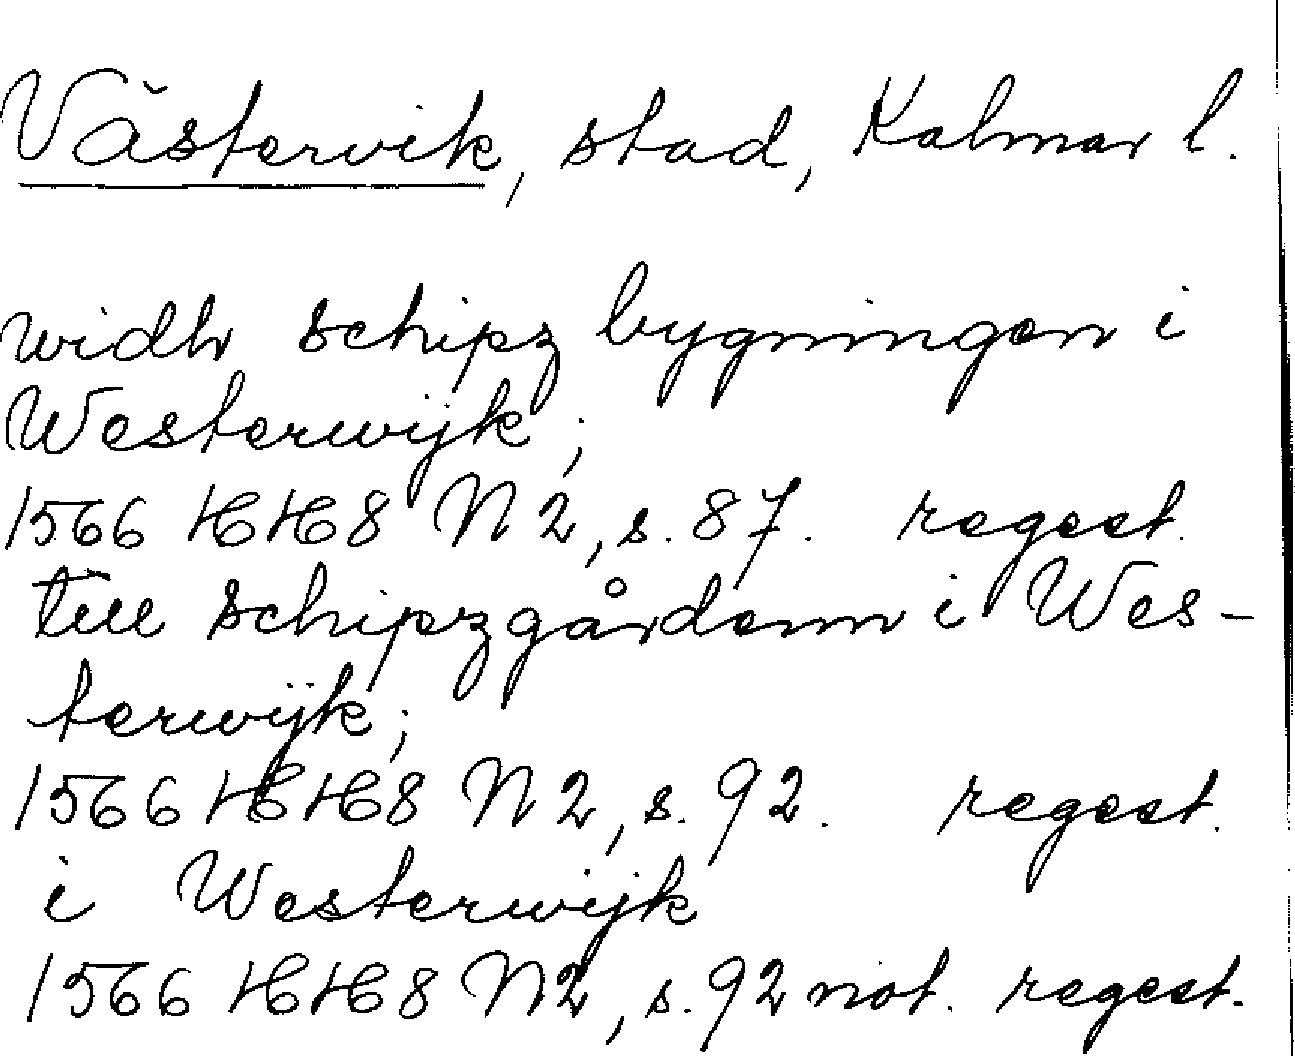 Västervik, stad, Kalmar l.
widh schipz bygningen i
Westerwijk;
1566 HH8 N2, s. 87. regest.
till schipzgårdenn i Wes-
terwijk;
1566 HH8 N2, s. 92. regest.
i Westerwijk
1566 HH8 N2, s. 92 not. regest.